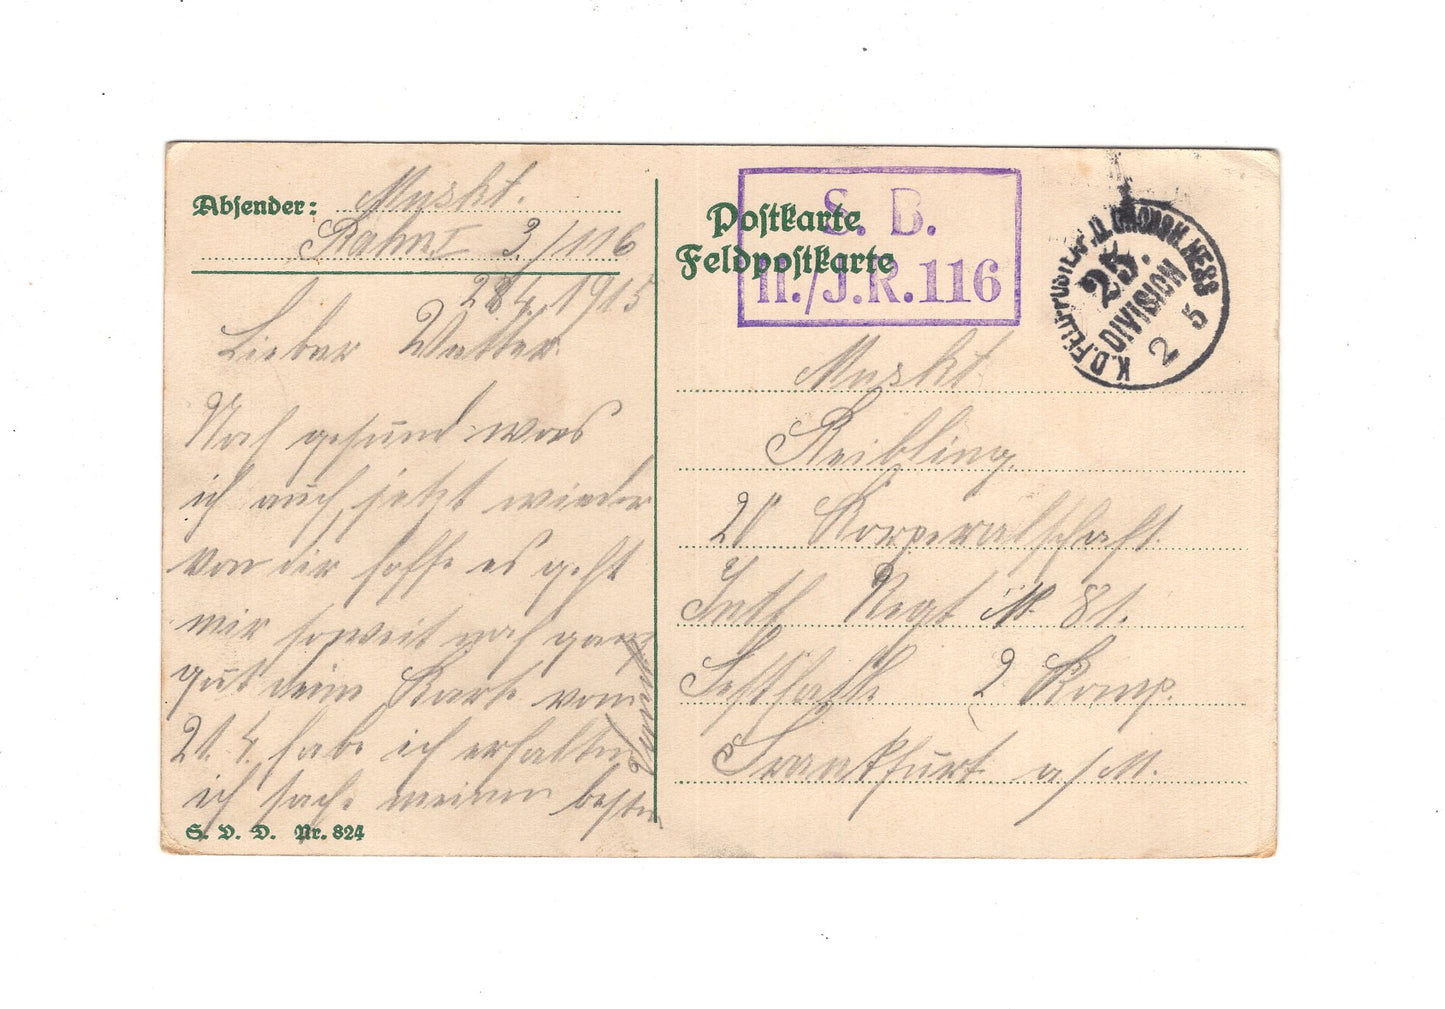 Absender: Muskt.
Rahn I 3/116
28.4.1915
Lieber Vatter
Noch gesund wars
ich auch jetzt wieder
von dir hoffe es geht
mir soweit noch ganz
gut deine Karte vom
21.4. habe ich erhalten
ich sage meinen besten
Dank
S. V. D. Nr. 824
Postkarte
Feldpostkarte
S. B.
II./J.R.116
K.D. FELDPOSTEXP. D. GROSSH. HESS
25.
DIVISION
2 5
Muskt
Reibling
20 Korperalschaft.
Inft Regt N 81.
Festhalle 2 Komp.
Frankfurt a/M.